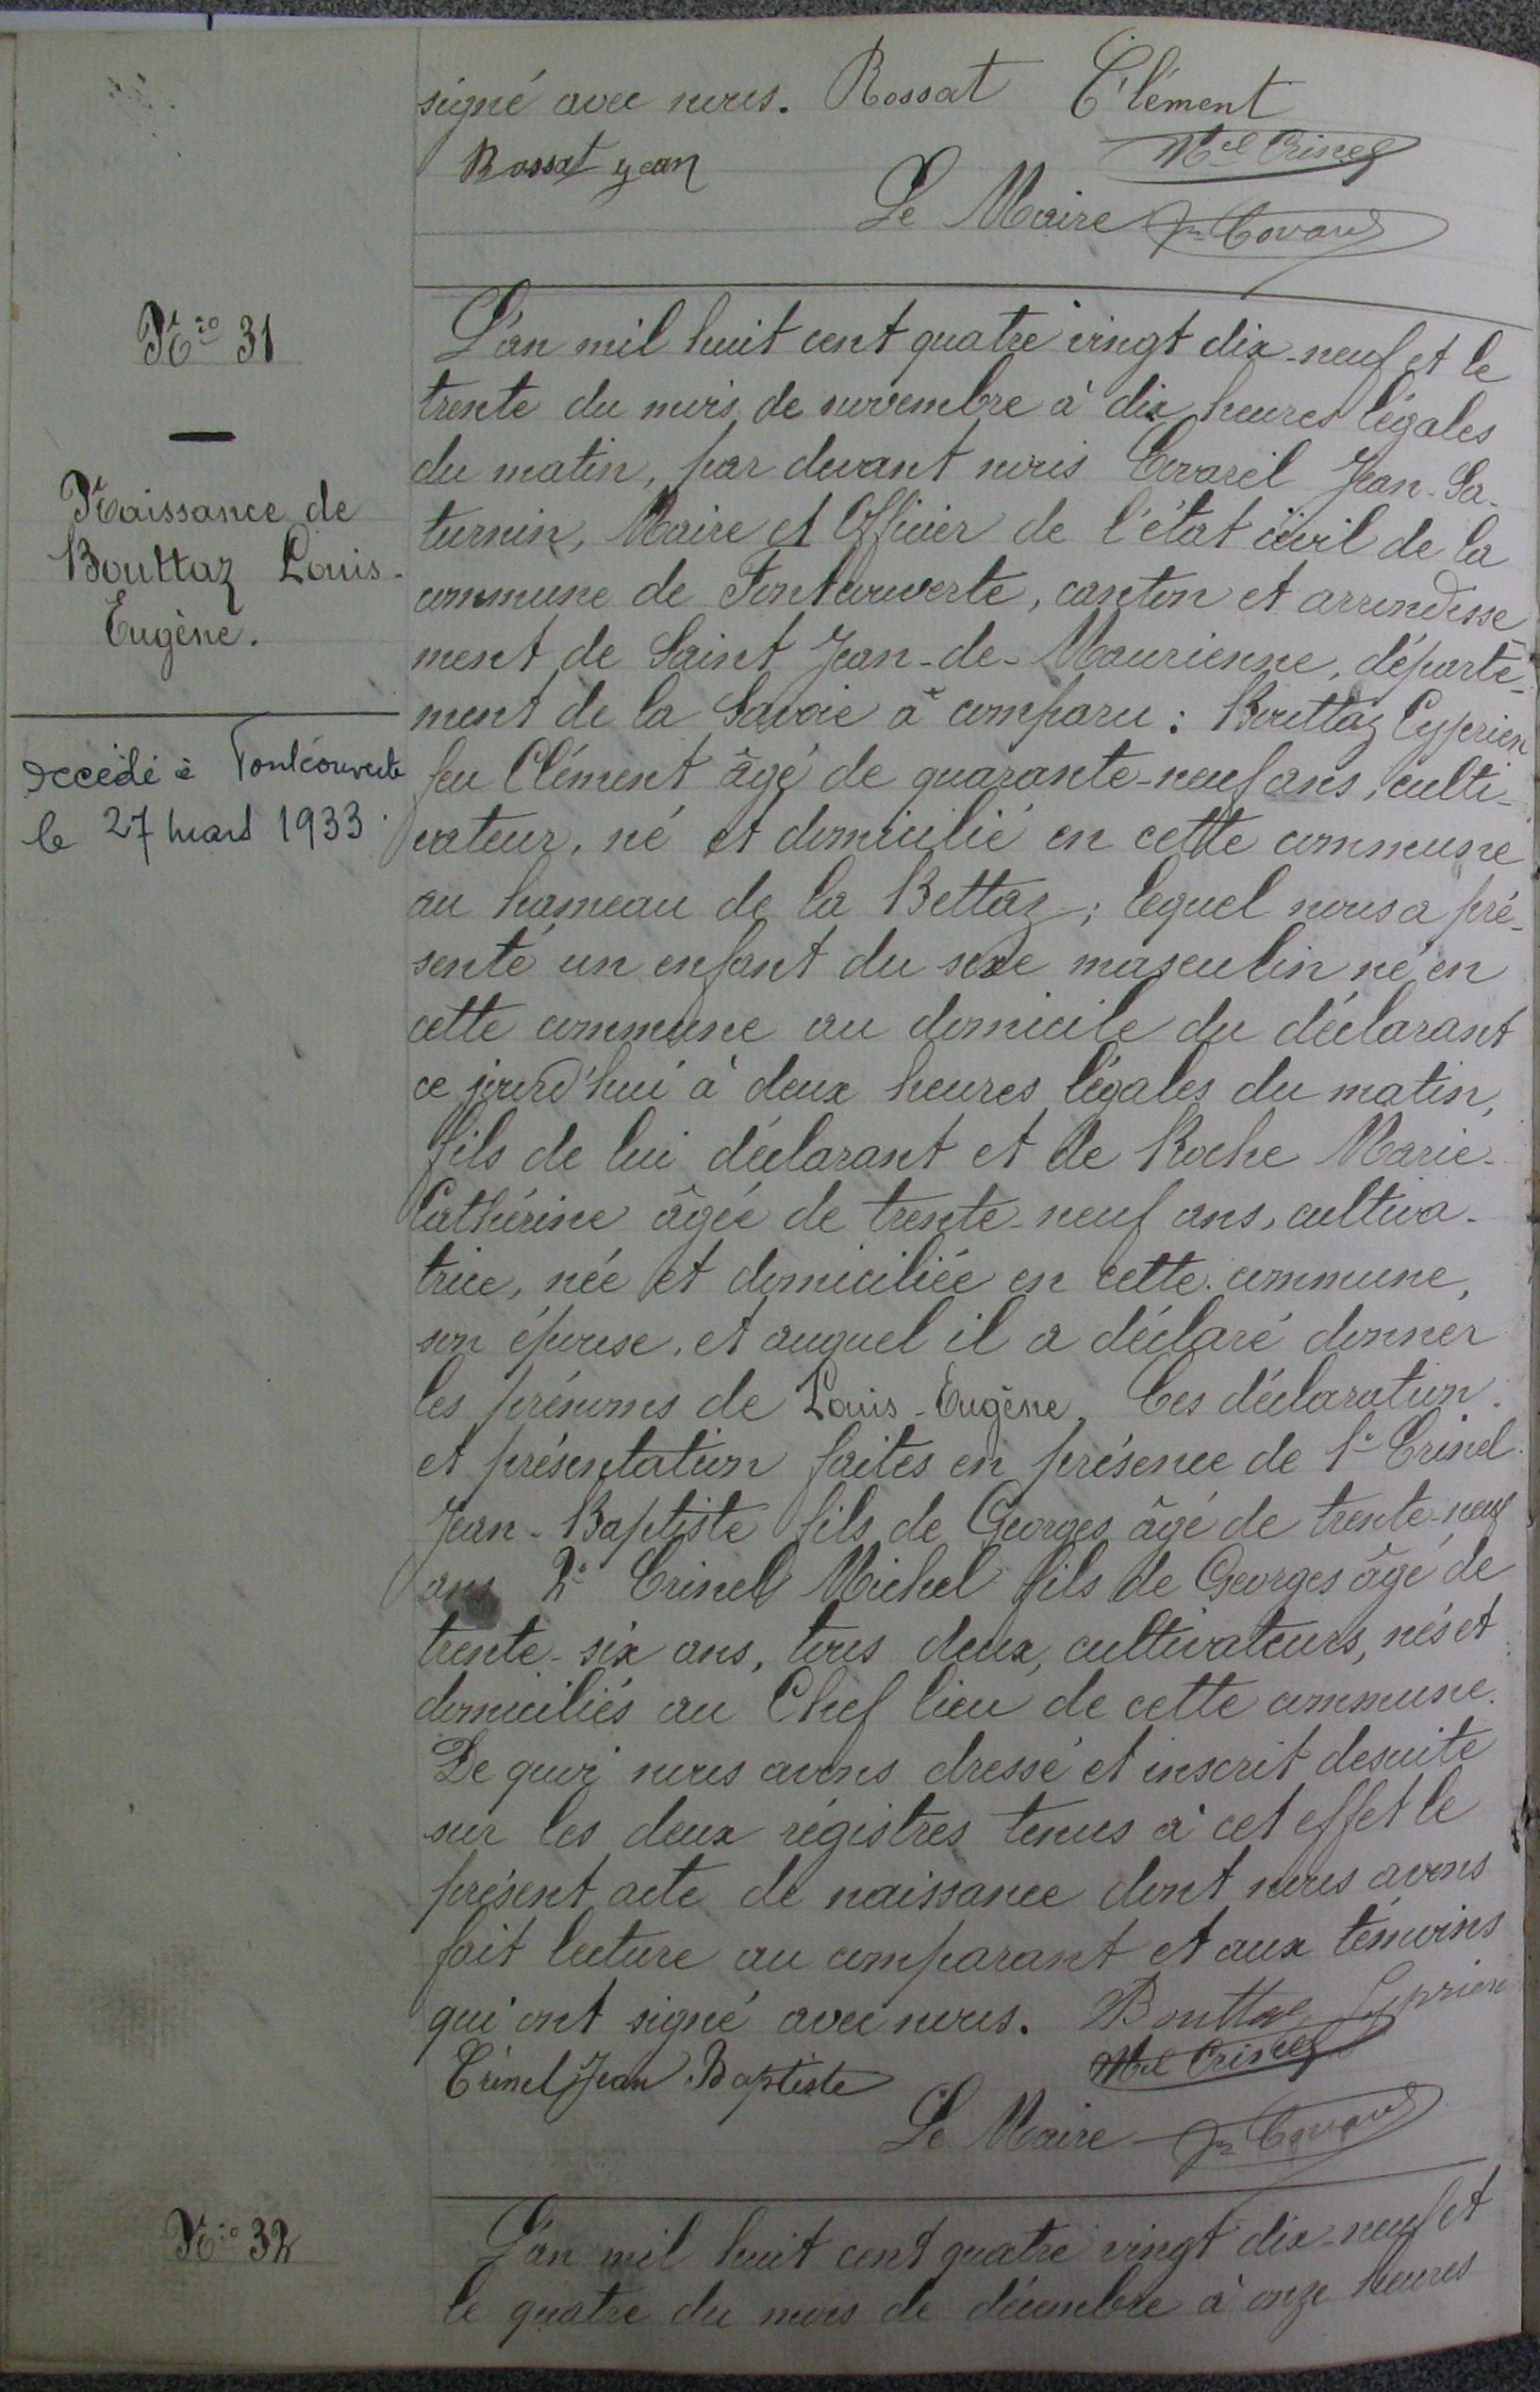 signé avec nous. Rossat Clément
Rossat jean
Mel Crinel
Le Maire Jn Covarel
Nro 31
Naissance de
Bouttaz Louis-
Eugène.
Décédé à Fontcouverte
le 27 mars 1933.
L'an mil huit cent quatre vingt dix-neuf et le
trente du mois de novembre à dix heures légales
du matin, par devant nous Covarel Jean-Sa-
turnin, Maire et Officier de l'état civil de la
commune de Fontcouverte, canton et arrondisse-
ment de Saint Jean-de-Maurienne, départe-
ment de la Savoie à comparu : Bouttaz Cyprien
feu Clément âgé de quarante-neuf ans, culti-
vateur, né et domicilié en cette commune
au hameau de la Bettaz ; lequel nous a pré-
senté un enfant du sexe masculin né en
cette commune au domicile du déclarant
ce jourd'hui à deux heures légales du matin,
fils de lui déclarant et de Roche Marie-
Cathérine âgée de trente-neuf ans, cultiva-
trice, née et domiciliée en cette commune,
son épouse, et auquel il a déclaré donner
les prénoms de Louis-Eugène. Ces déclaration
et présentation faites en présence de 1° Crinel
Jean-Baptiste fils de Georges âgé de trente-neuf
ans 2° Crinel Michel fils de Georges âgé de
trente-six ans, tous deux, cultivateurs, nés et
domiciliés au Chef lieu de cette commune.
De quoi nous avons dressé et inscrit desuite
sur les deux régistres tenus à cet effet le
présent acte de naissance dont nous avons
fait lecture au comparant et aux témoins
qui ont signé avec nous. Bouttaz Cyprien
Crinel Jean Baptiste
Mel Crinel
Le Maire Jn Covarel
Nro 32
L'an mil huit cent quatre vingt dix-neuf et
le quatre du mois de décembre à onze heures